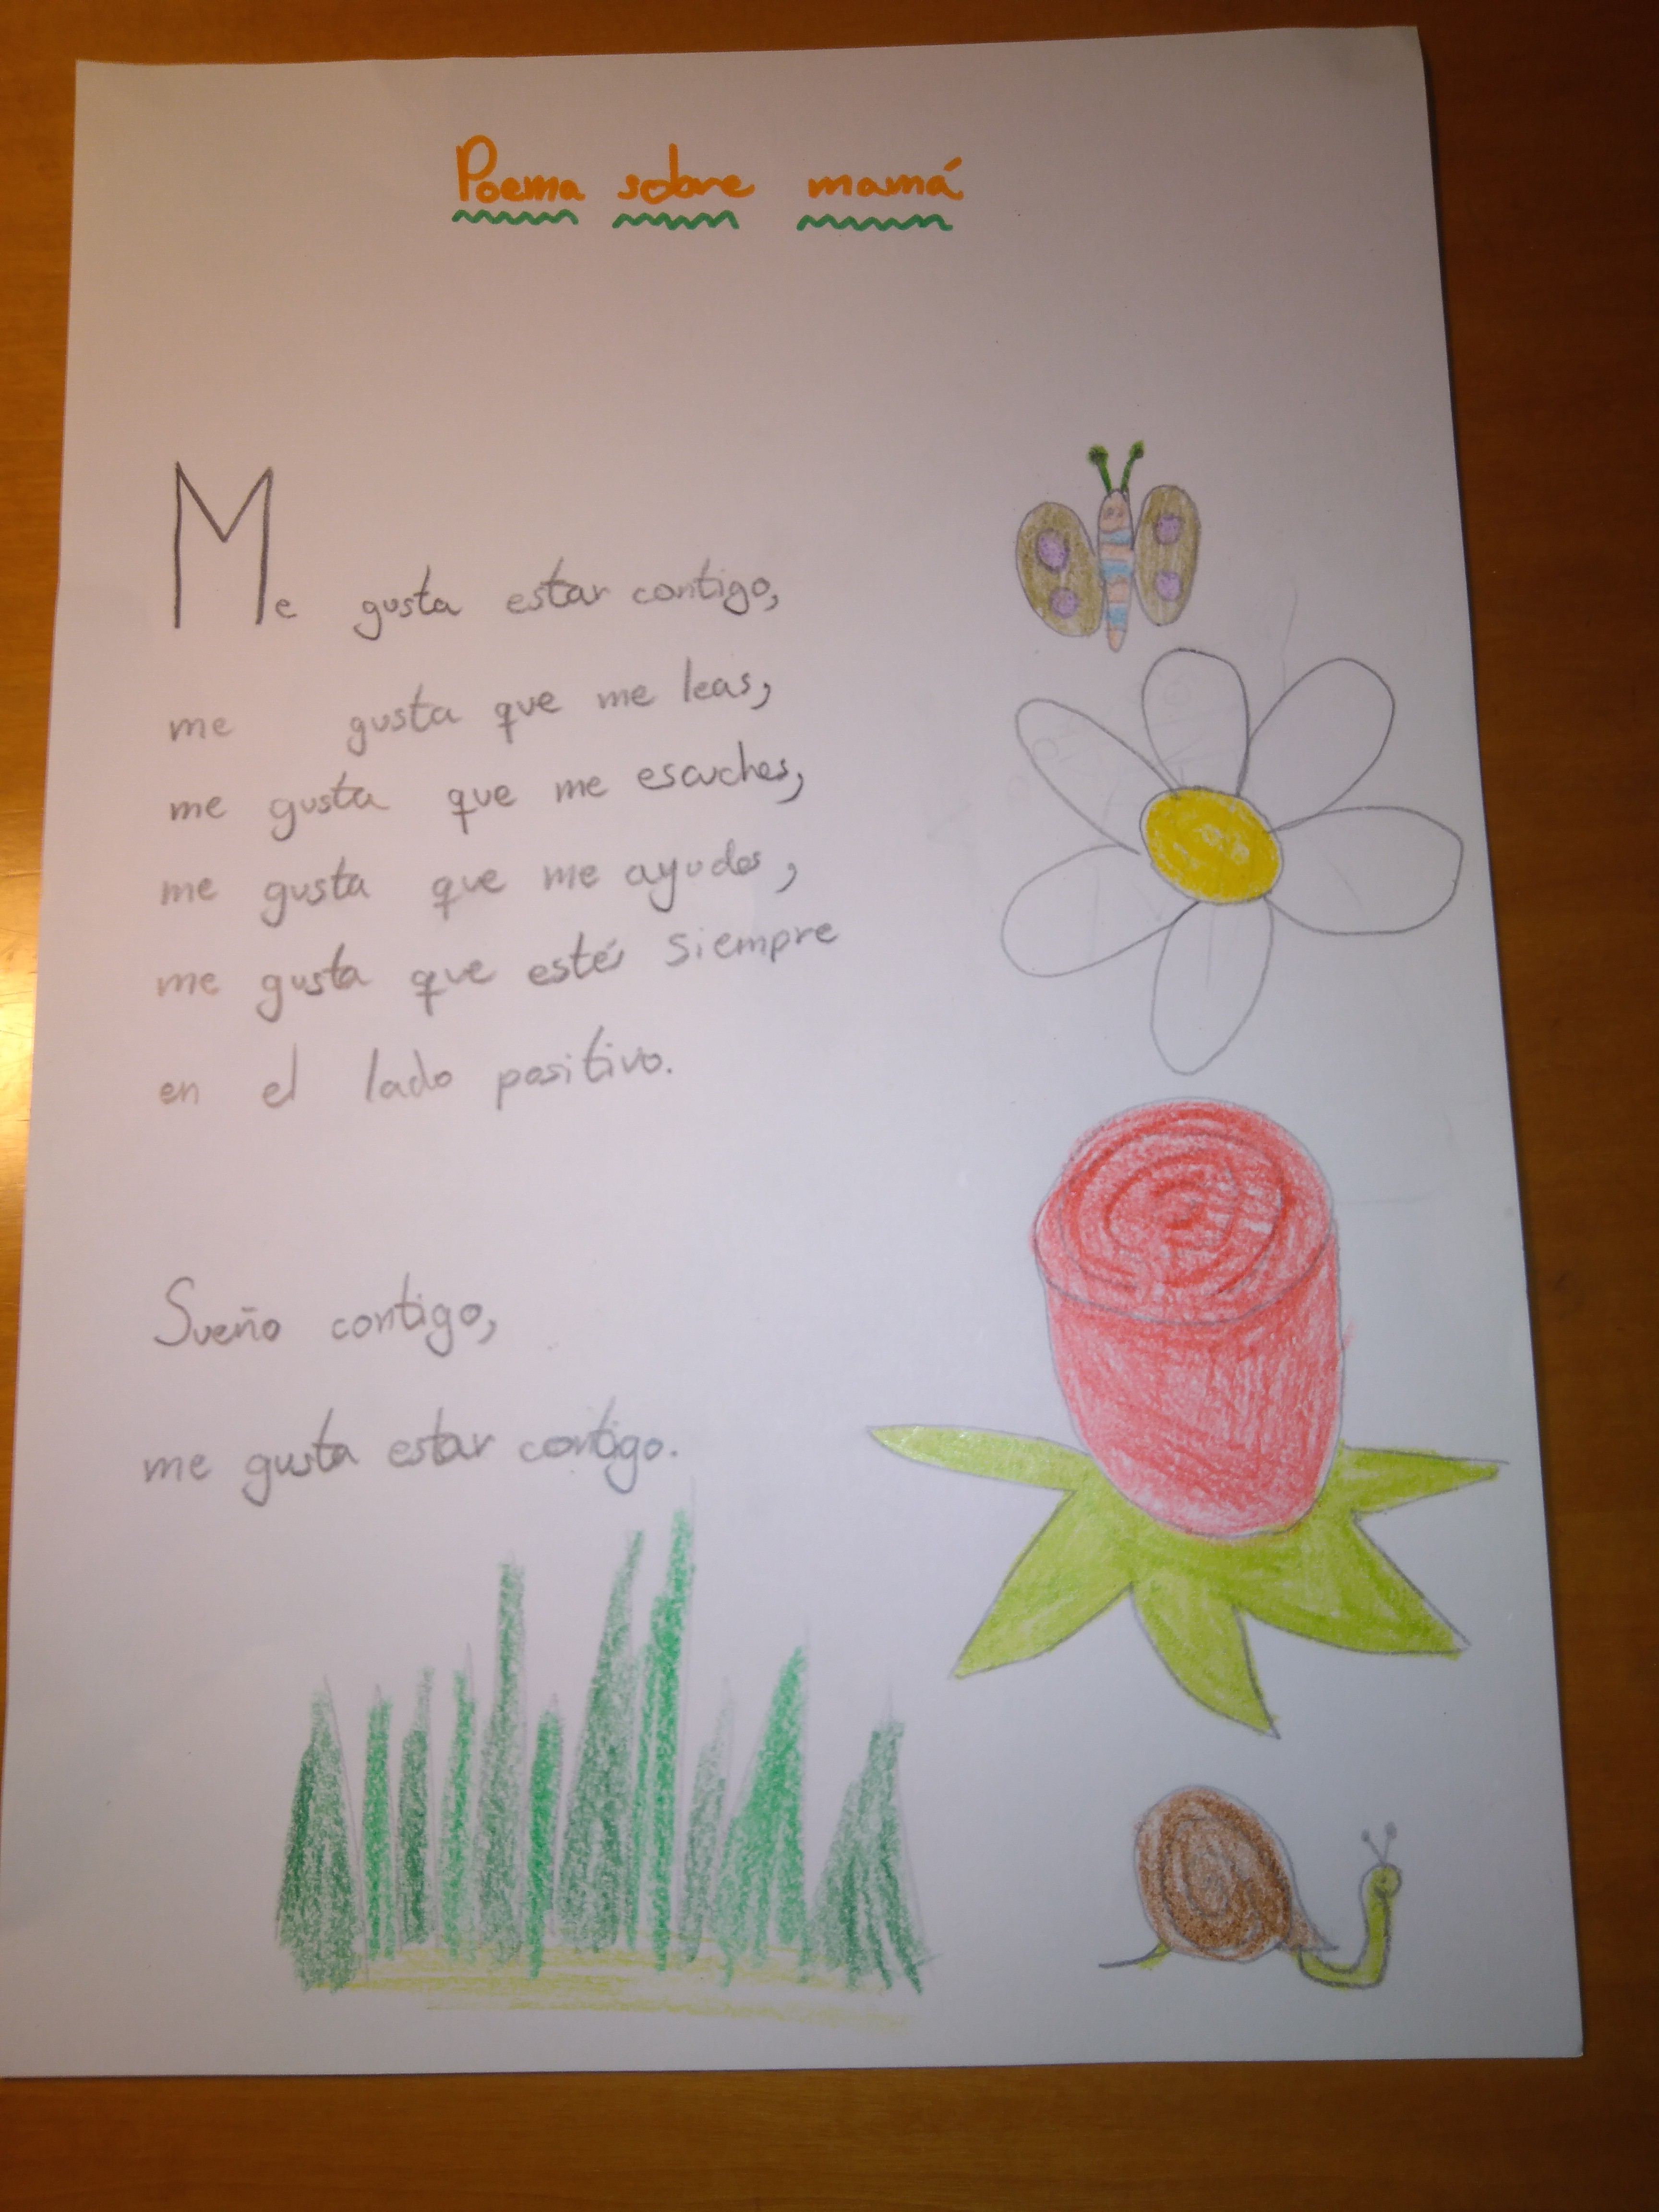 Poema sobre mamá
Me gusta estar contigo,
me gusta que me leas,
me gusta que me escuches,
me gusta que me ayudes,
me gusta que estés siempre
en el lado positivo.
Sueño contigo,
me gusta estar contigo.